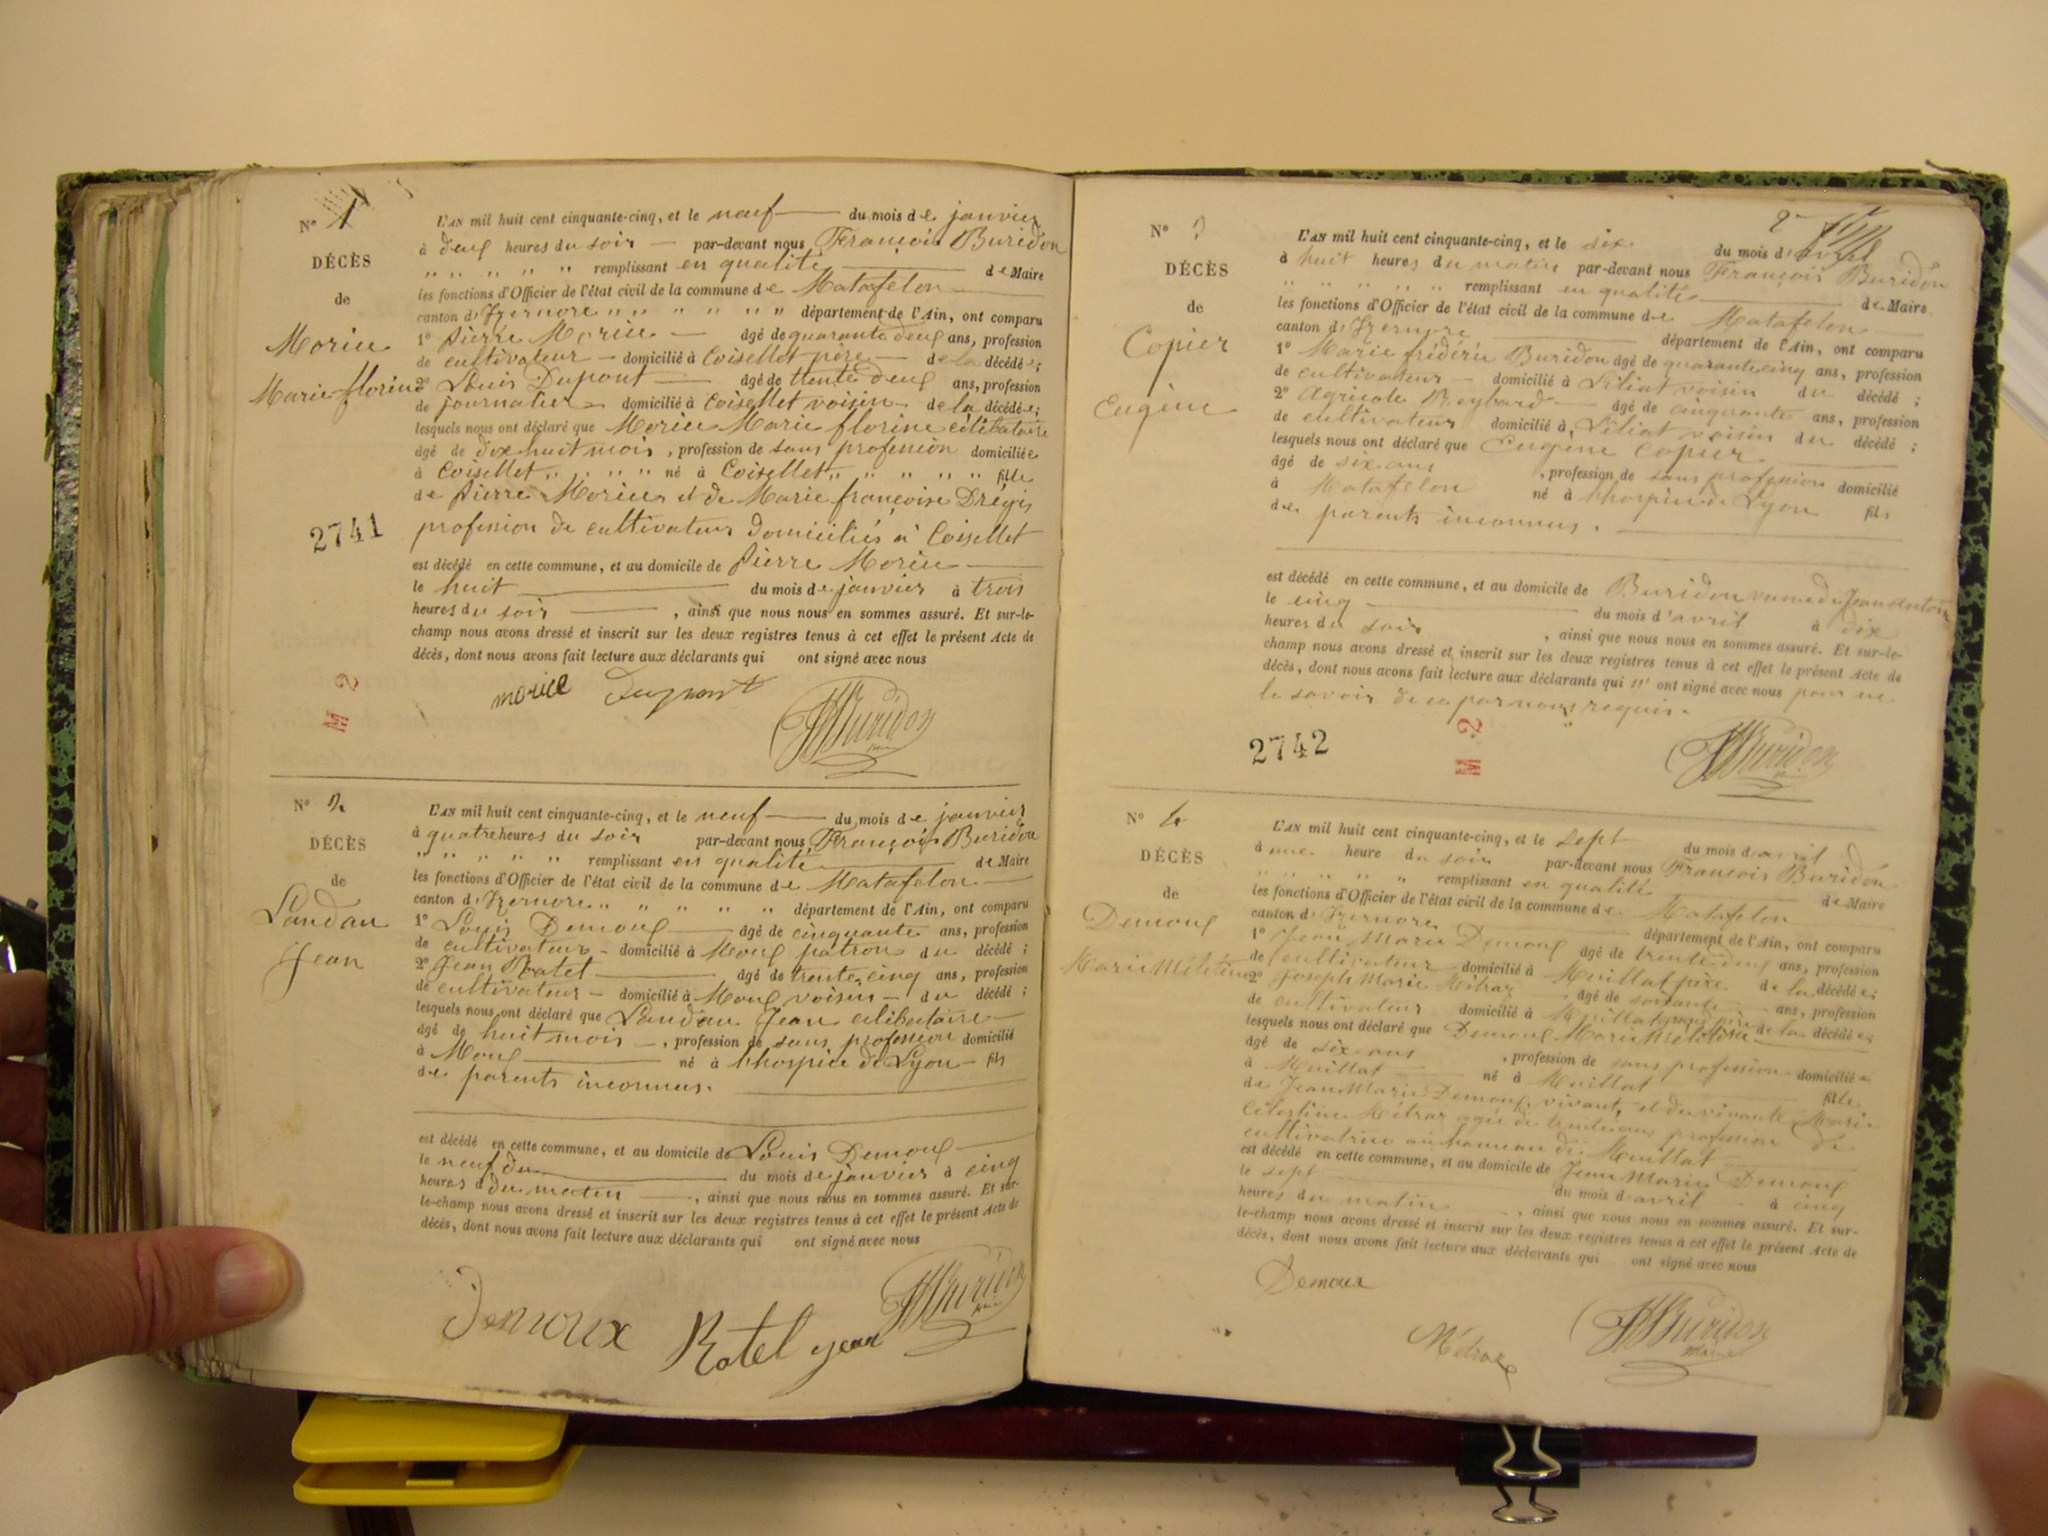 N° 1
DÉCÈS
de
Morice
Marie florine
L'AN mil huit cent cinquante-cinq, et le neuf du mois de janvier
à deux heures du soir par-devant nous François Buridon
" " " " " remplissant en qualité de Maire
les fonctions d'Officier de l'état civil de la commune de Matafelon
canton d'Izernore " " " " " département de l'Ain, ont comparu
1° Pierre Morice âgé de quarante deux ans, profession
de cultivateur domicilié à Coisellet père de la décédée;
2° Louis Dupont âgé de trente deux ans, profession
de journalier domicilié à Coisellet voisin de la décédée;
lesquels nous ont déclaré que Morice Marie florine célibataire
âgé de dix huit mois, profession de sans profession domiciliée
à Coisellet " " " " né à Coisellet " " " " " fille
de Pierre Morice et de Marie françoise Drégis
profession de cultivateurs domiciliés à Coisellet
est décédé en cette commune, et au domicile de Pierre Morice
le huit du mois de janvier à trois
heures du soir, ainsi que nous nous en sommes assuré. Et sur-le-
champ nous avons dressé et inscrit sur les deux registres tenus à cet effet le présent Acte de
décès, dont nous avons fait lecture aux déclarants qui ont signé avec nous
morice Dupont Buridon
2741
M 2
N° 2
DÉCÈS
de
Landau
Jean
L'AN mil huit cent cinquante-cinq, et le neuf du mois de janvier
à quatre heures du soir par-devant nous François Buridon
" " " " " remplissant en qualité de Maire
les fonctions d'Officier de l'état civil de la commune de Matafelon
canton d'Izernore " " " " " département de l'Ain, ont comparu
1° Louis Demoux âgé de cinquante ans, profession
de cultivateur domicilié à Moux patron du décédé;
2° Jean Ratel âgé de trente cinq ans, profession
de cultivateur domicilié à Moux voisin du décédé;
lesquels nous ont déclaré que Landau Jean célibataire
âgé de huit mois, profession de sans profession domicilié
à Moux né à l'hospice de Lyon fils
de parents inconnus.
est décédé en cette commune, et au domicile de Louis Demoux
le neuf du du mois de janvier à cinq
heures d du matin, ainsi que nous nous en sommes assuré. Et sur-
le-champ nous avons dressé et inscrit sur les deux registres tenus à cet effet le présent Acte de
décès, dont nous avons fait lecture aux déclarants qui ont signé avec nous
Demoux Ratel jean Buridon
N° 3
DÉCÈS
de
Copier
Eugène
L'AN mil huit cent cinquante-cinq, et le six du mois d'avril
à huit heures du matin par-devant nous François Buridon
" " " " " remplissant en qualité de Maire
les fonctions d'Officier de l'état civil de la commune de Matafelon
canton d'Izernore département de l'Ain, ont comparu
1° Marie frédéric Buridon âgé de quarante cinq ans, profession
de cultivateur domicilié à voisin du décédé;
2° Agricole Reybard âgé de cinquante ans, profession
de cultivateur domicilié à voisin du décédé;
lesquels nous ont déclaré que Eugène Copier
âgé de six ans, profession de sans profession domicilié
à Matafelon né à l'hospice de Lyon fils
de parents inconnus.
est décédé en cette commune, et au domicile de Buridon
le cinq du mois d'avril à dix
heures du soir, ainsi que nous nous en sommes assuré. Et sur-le-
champ nous avons dressé et inscrit sur les deux registres tenus à cet effet le présent Acte de
décès, dont nous avons fait lecture aux déclarants qui n'ont signé avec nous pour ne
le savoir de ce par nous requis.
Buridon
2742
M 2
N° 4
DÉCÈS
de
Demoux
L'AN mil huit cent cinquante-cinq, et le sept du mois d'avril
à une heure du soir par-devant nous François Buridon
" " " " " remplissant en qualité de Maire
les fonctions d'Officier de l'état civil de la commune de Matafelon
canton d'Izernore département de l'Ain, ont comparu
1° Jean Marie Demoux âgé de trente deux ans, profession
de cultivateur domicilié à Meillat père de la décédée;
2° Joseph Marie Métraz âgé de soixante ans, profession
de cultivateur domicilié à Meillat de la décédée;
lesquels nous ont déclaré que Demoux Marie
âgé de six ans, profession de sans profession domiciliée
à Meillat né à Meillat fille
de Jean Marie Demoux vivant, et de vivante Marie
Célestine Métraz agée de trente ans profession de
cultivatrice au hameau de Meillat
est décédé en cette commune, et au domicile de Jean Marie Demoux
le sept du mois d'avril à cinq
heures du matin, ainsi que nous nous en sommes assuré. Et sur-
le-champ nous avons dressé et inscrit sur les deux registres tenus à cet effet le présent Acte de
décès, dont nous avons fait lecture aux déclarants qui ont signé avec nous
Demoux
Métraz Buridon